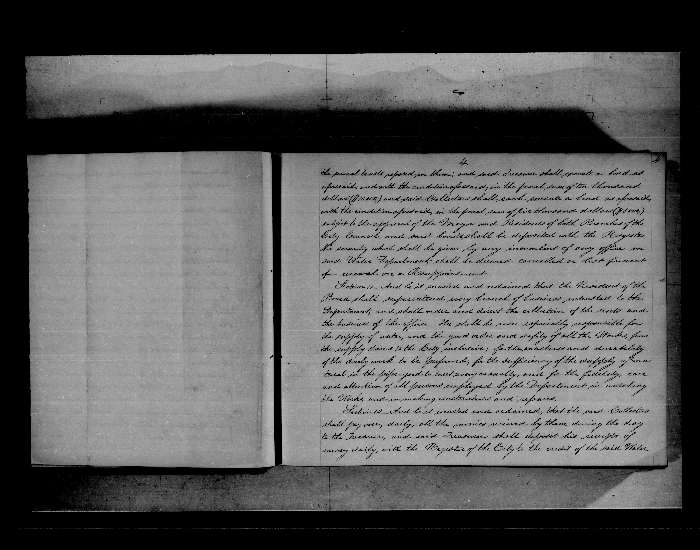 4
the penal trusts reposed in them; and said Treasurer shall, execute a bond as
aforesaid, and with the condition aforesaid, in the penal sum of ten thousand
dollars and said Collectors shall, each, execute a bond as aforesaid,
with the condition aforesaid, in the penal sum of five thousand dollars
subject to the approval of the Mayor and Presidents of both Branches of the
City Council and said bonds shall be deposited with the Register
No security which shall be given by any incumbent of any office in
said Water Department shall be deemed cancelled or
renewal on a Reappointment
Section And be it enacted and ordained that the President of the
Board shall superintend every branch of business intrusted to the
Department, and shall order and direct the collection of the rents and
the business of the office. He shall be more especially responsible for
the supply of water, and the good order and safety of all the Works, from
the supply dams to the City inclusive; for the and durability
of the daily work to be performed, for the sufficiency of the supply of
to meet any casualty, and for the fidelity, care
and attention of all persons employed by the Department in
the Works and in making constructions and repairs.
Section And be it enacted and ordained, that the said Collectors
shall pay over, daily, all the monies received by them during the day
to the Treasurer, and said Treasurer shall deposit his receipts of
money daily, with the Register of the City to the credit of the said Water